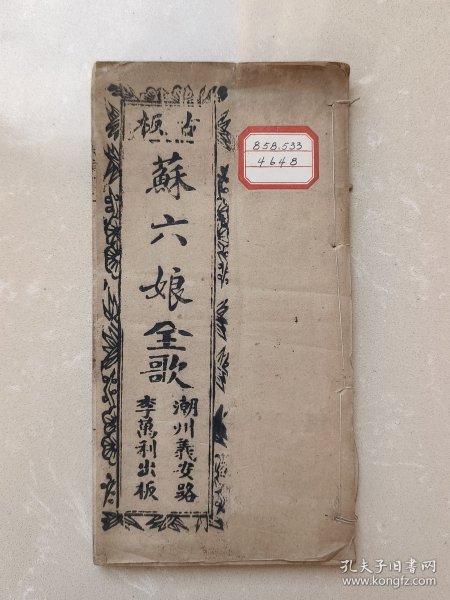 古板
蘇六娘全歌
潮州義安路
李萬利出板
858.533
4648
孔夫子旧书网
www.kongfz.com